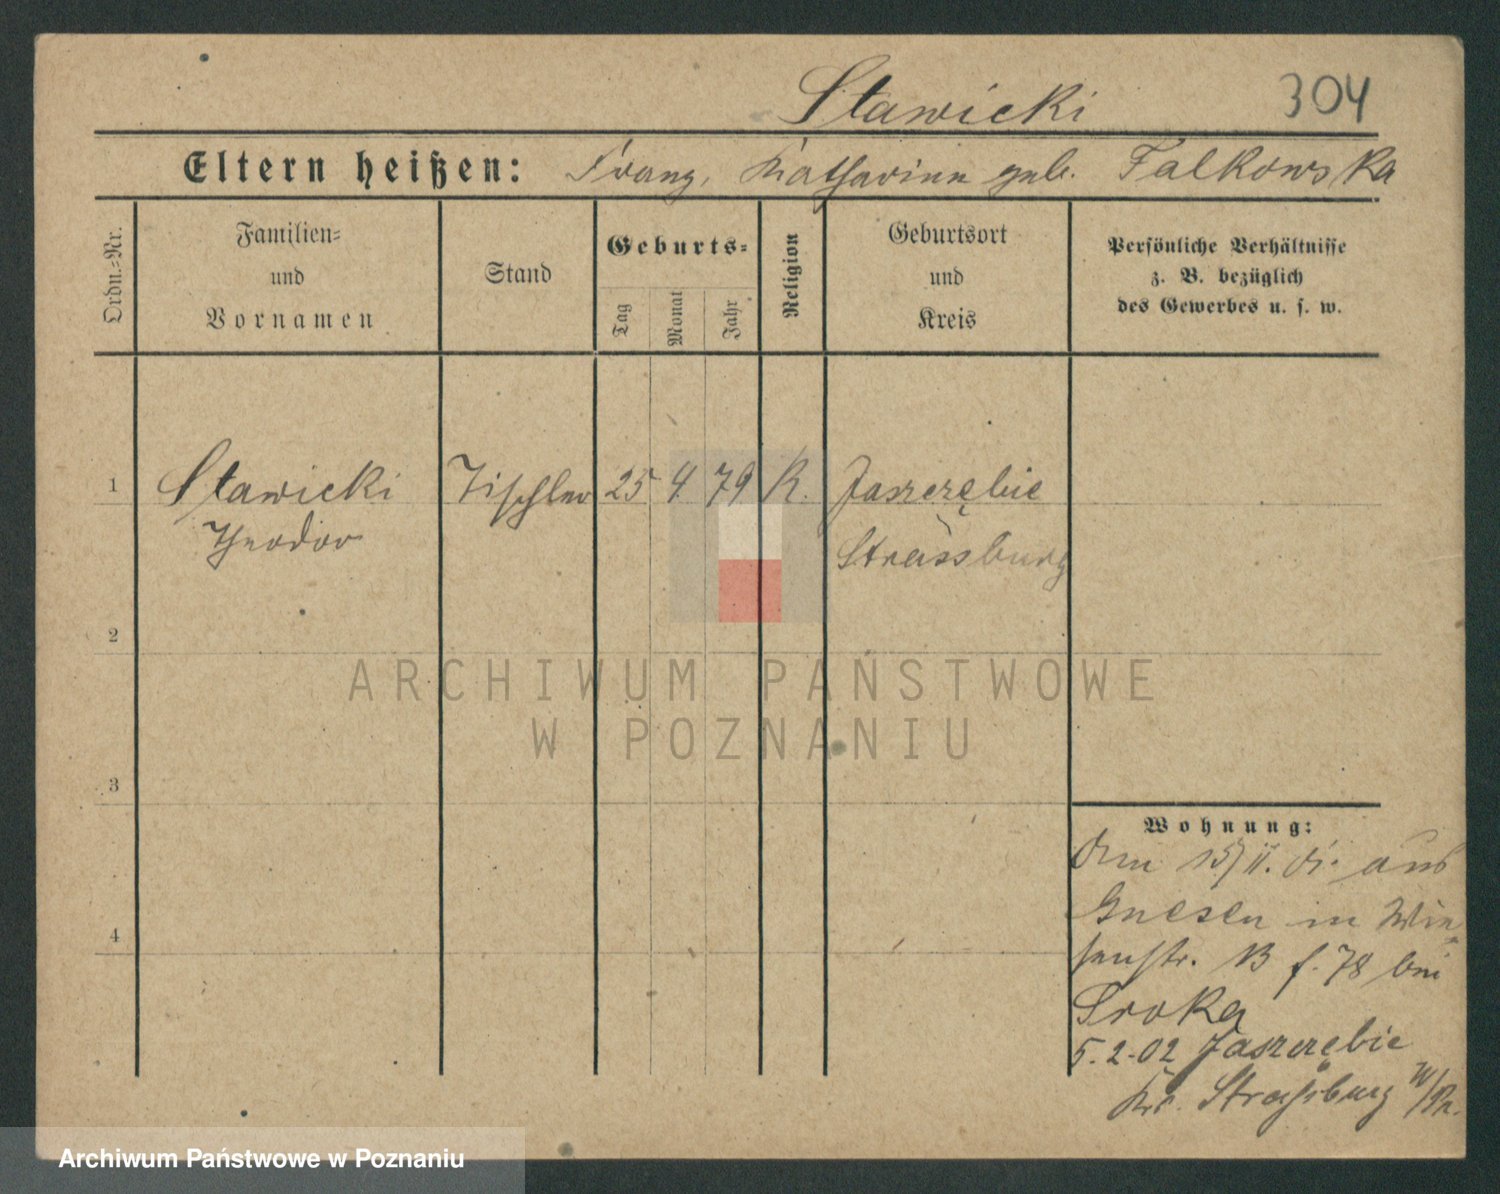 Stawicki 304
Eltern heißen: Franz, Katharina geb. Falkowska
Ordn.-Nr.
Familien-
und
Vornamen
Stand
Geburts-
Tag
Monat
Jahr
Religion
Geburtsort
und
Kreis
Persönliche Verhältnisse
z. B. bezüglich
des Gewerbes u. s. w.
1 Stawicki Tischler 25 4 79 K. Jaszczębie
Theodor Strassburg
2
3
4
Wohnung:
aus
Gnesen in Wie-
senstr. 13 f. 78 bei
Sroka
5.2.02 Jaszczębie
Kr. Strassburg W/Pr.
ARCHIWUM PAŃSTWOWE
W POZNANIU
Archiwum Państwowe w Poznaniu